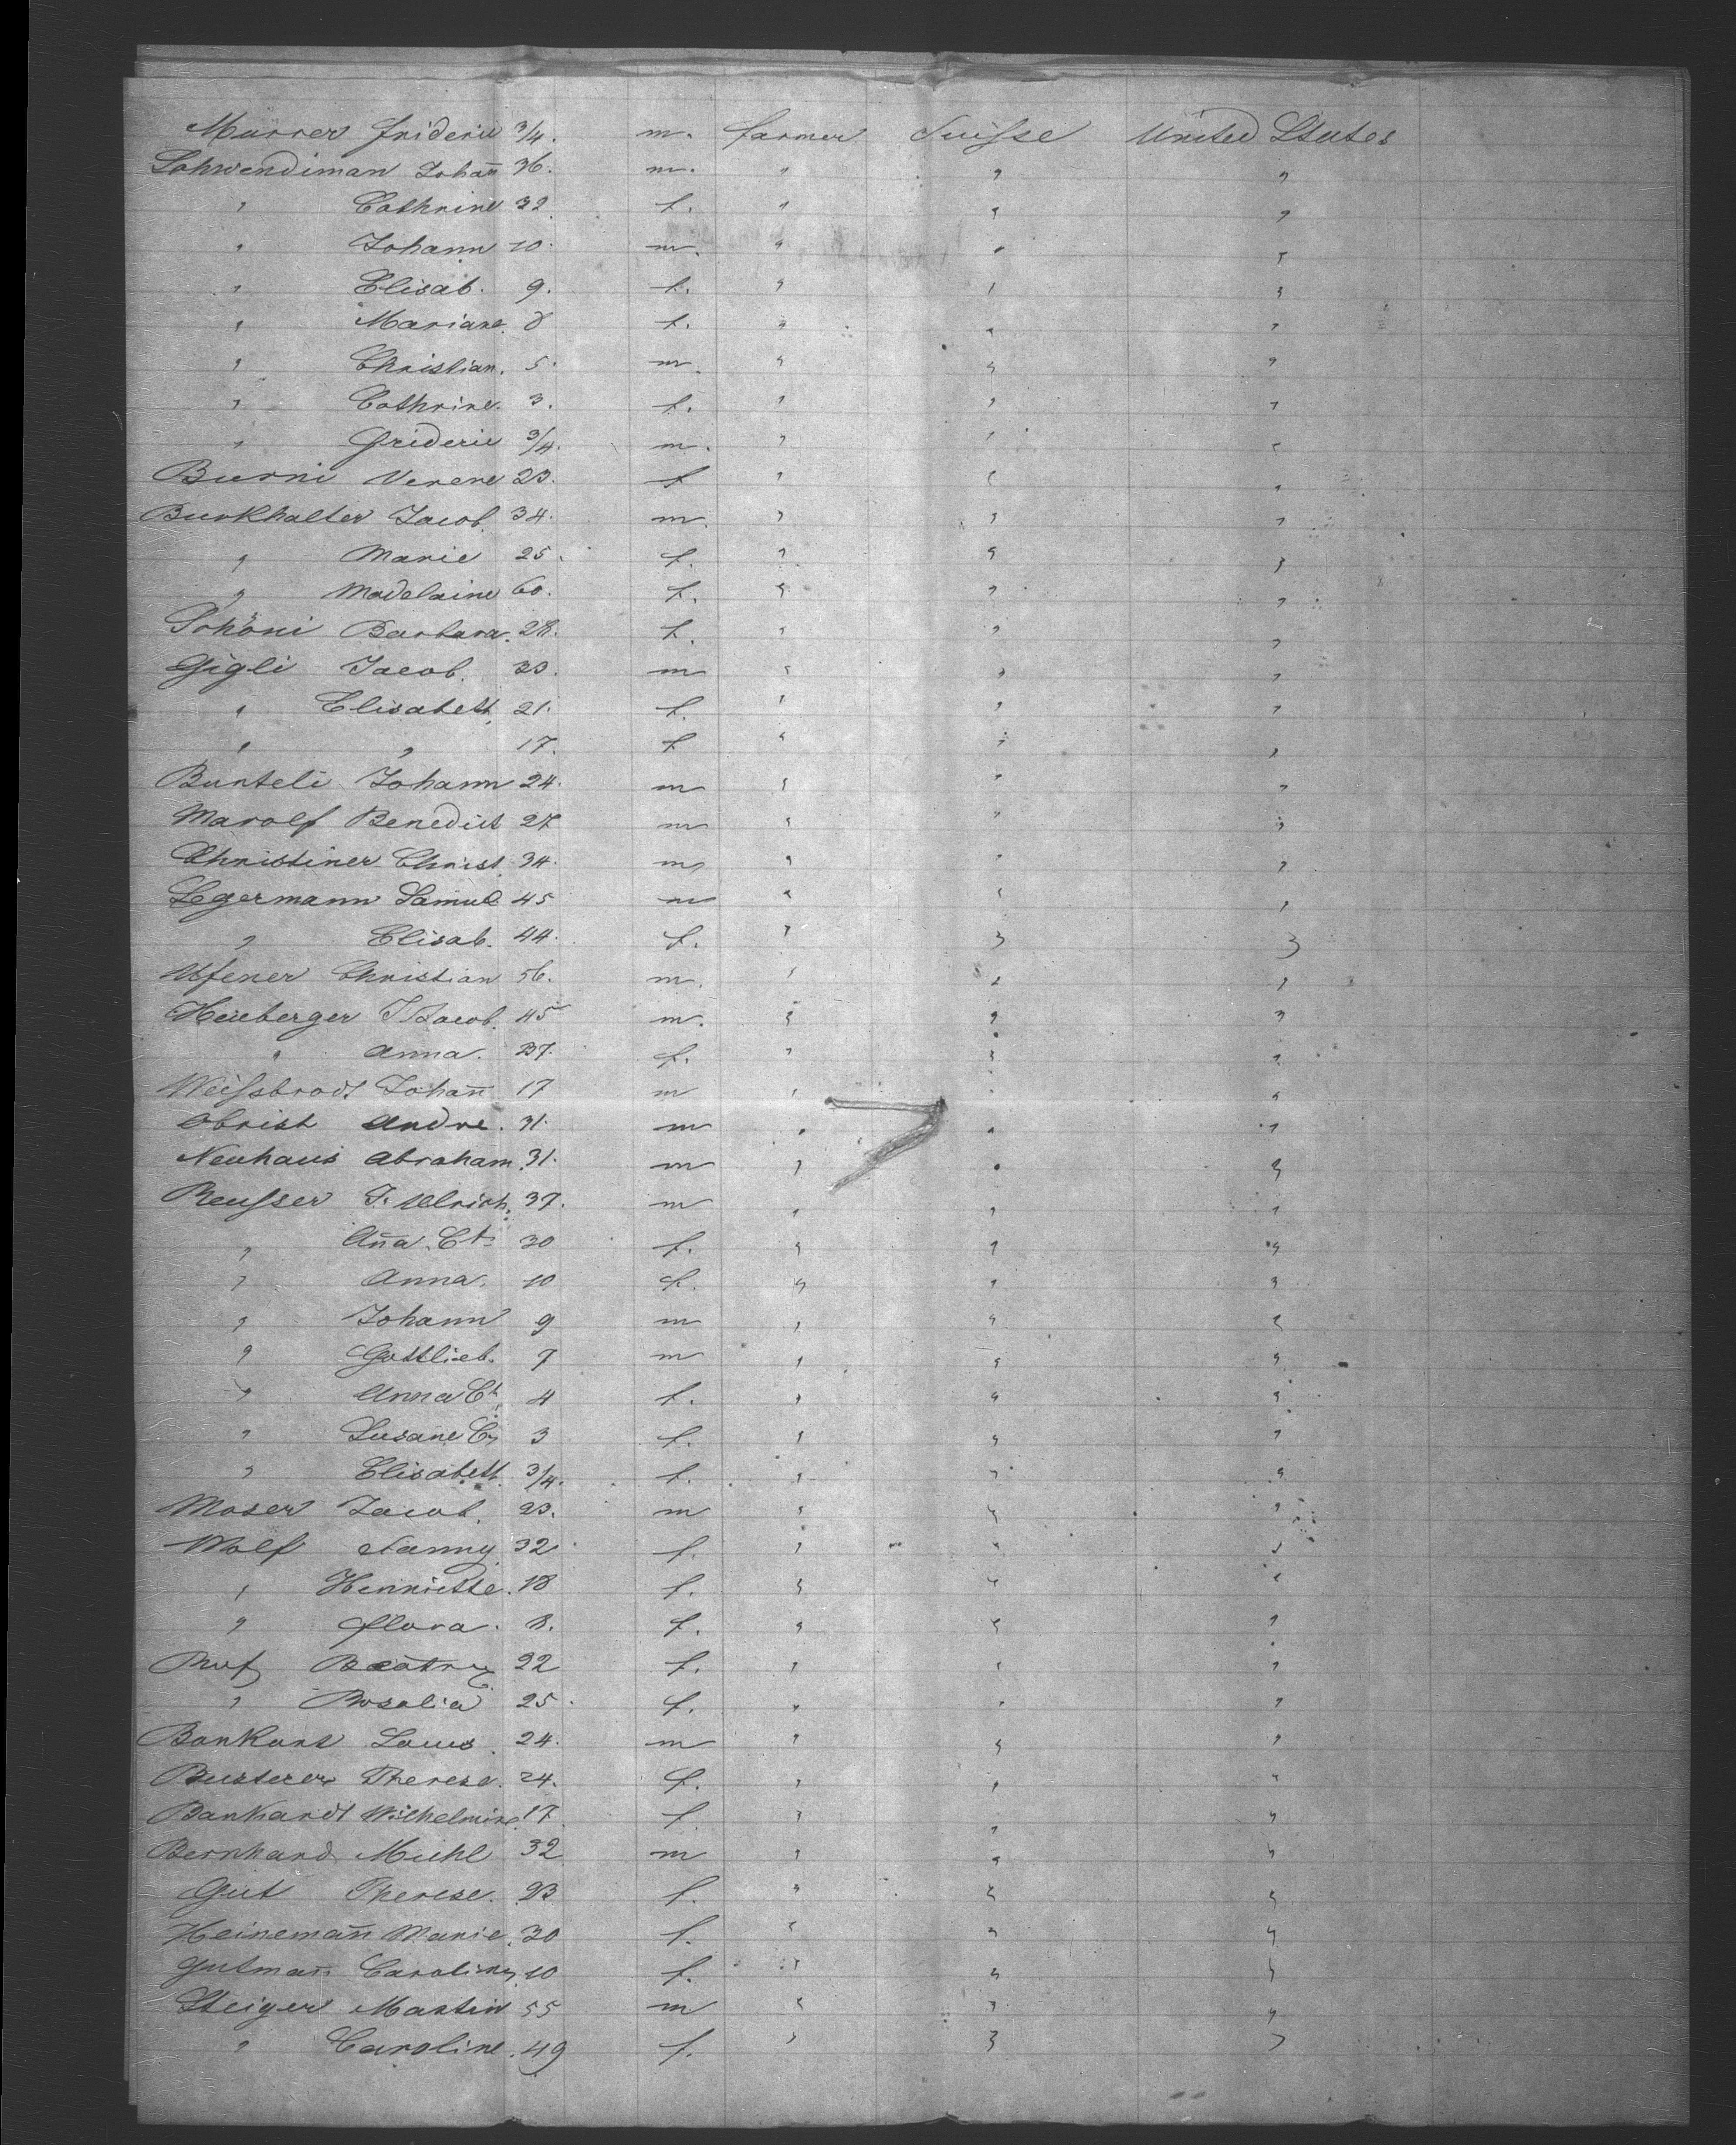 Murrer Frideric 3/4. m. farmer Suisse United States
Schwendiman Johan̄ 36. m. " " "
" Cathrine 32. f. " " "
" Johann 10. m. " " "
" Elisab. 9. f. " " "
" Mariane. 8 f. " " "
" Christian. 5. m. " " "
" Cathrine. 3. f. " " "
" Frideric 3/4. m. " " "
Burni Verene 23. f " " "
Burkhalter Jacob. 34. m. " " "
" Marie 25. f. " " "
" Madelaine 60. f. " " "
Schöni Barbara. 28. f. " " "
Gigli Jacob. 23. m " " "
" Elisabeth. 21. f. " " "
" " 17. f " " "
Bunteli Johann 24. m " " "
Marolf Benedict 27 m " " "
Christiner Christ. 34. m " " "
Legermann Samuel 45 m " " "
" Elisab. 44. f. " " "
Ufener Christian 56. m. " " "
Heuberger J. Jacob. 45 m. " " "
" Anna. 37. f. " " "
Weissbrodt Johan̄ 17 m " " "
Obrist Andre. 31. m " " "
Neuhaus Abraham. 31. m " " "
Reusser J. Ulrich. 37. m " " "
" An̄a. Ct. 30 f. " " "
" Anna. 10 f. " " "
" Johann 9 m " " "
" Gottlieb. 7 m " " "
" Anna Ct. 4 f. " " "
" Susane 3 f. " " "
" Elisabeth. 3/4. f. " " "
Moser Jacob. 23. m " " "
Wolf Nanny 32 f. " " "
" Henriette. 18 f. " " "
" Flora. 8. f. " " "
Ruf Beatrix 22 f. " " "
" Rosalia 25. f. " " "
Bankart Louis. 24. m " " "
Therese. 24. f. " " "
Bankardt Wilhelmine. 17. f. " " "
Bernhard Michl 32 m " " "
Gut Therese. 23 f. " " "
Heineman̄ Marie. 30 f. " " "
Gutman̄ Caroline 10 f. " " "
Steiger Martin 55 m " " "
" Caroline. 49 f. " " "